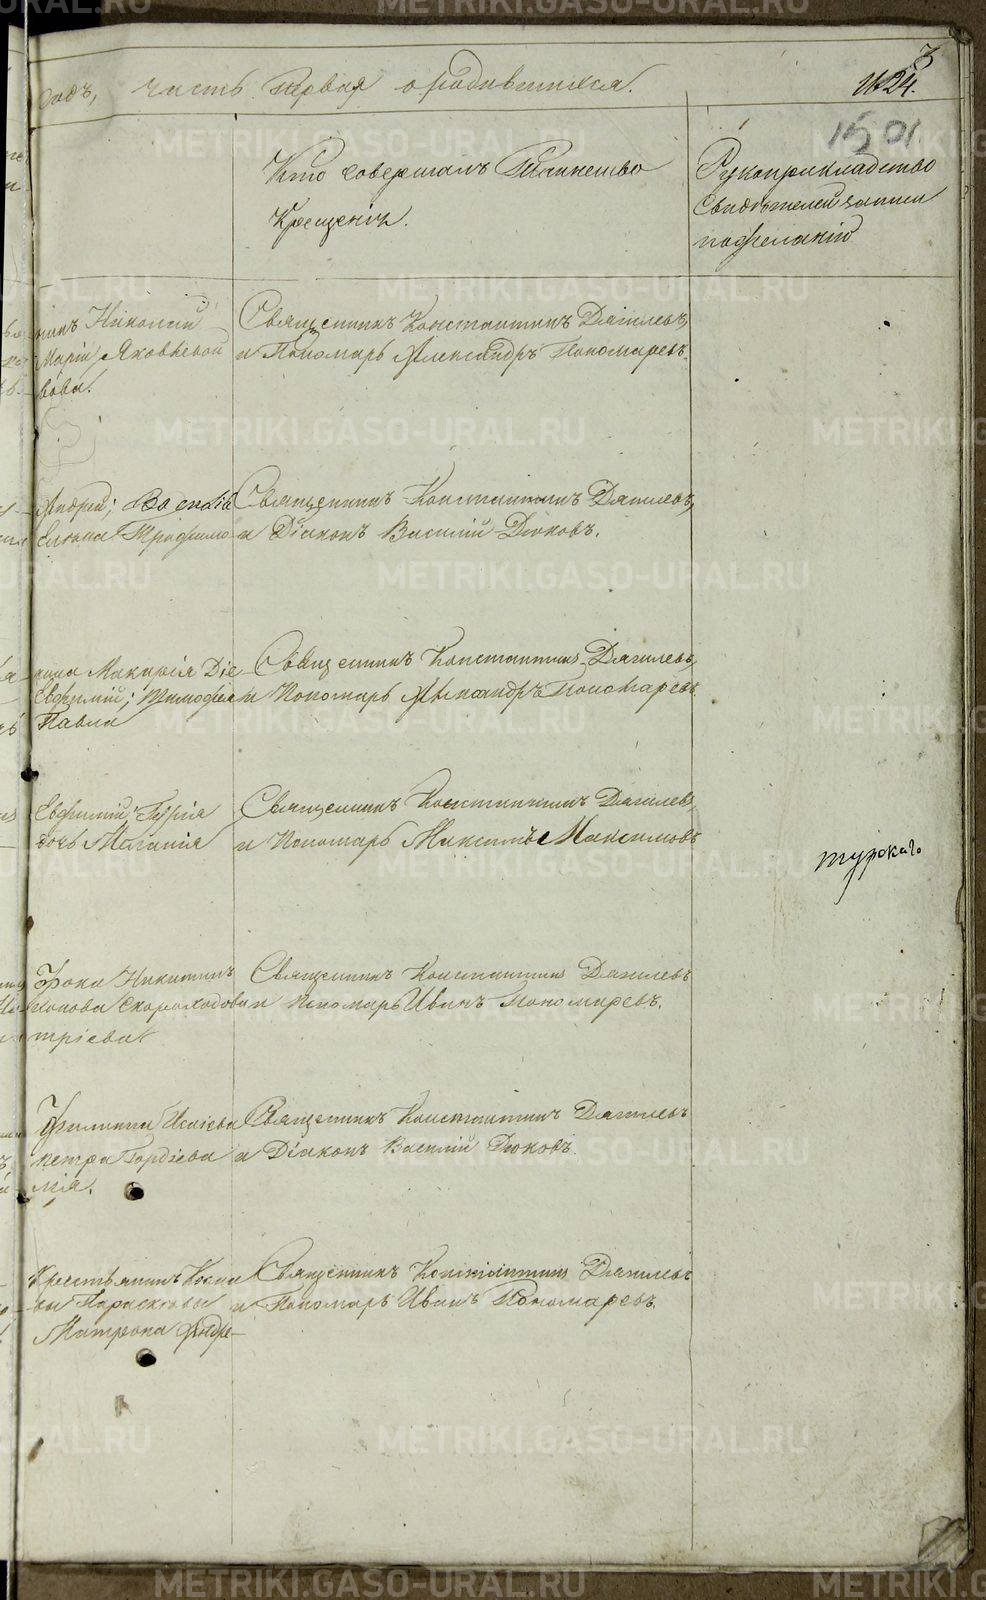 годъ, часть Первая о родившихся.
3
№ 24.
1501
Кто совершалъ Таинство
Крещенія.
Рукоприкладство
Свидѣтелей записи
по желанію
Николай
Маріи Яковлевой
вова.
Священникъ Константинъ Дягилевъ,
и Пономарь Александръ Пономаревъ.
Андрей;
Трофимо
Священникъ Константинъ Дягилевъ,
и Діаконъ Василій Дюковъ.
Макарія Діе
Евфимій; Тимофея
Павла
Священникъ Константинъ Дягилевъ,
и Пономарь Александръ Пономаревъ.
Евфимій; Гурія
дочь Маланія
Священникъ Константинъ Дягилевъ,
и Пономарь Максимъ Максимовъ
турскаго
Фока Никитинъ
попова Скороходова
тріева
Священникъ Константинъ Дягилевъ
и Пономарь Иванъ Пономаревъ.
Филиппа Исаіева
петра Гордіева
мія.
Священникъ Константинъ Дягилевъ
и Діаконъ Василій Дюковъ.
Крестьянинъ Косма
ва Параскова
Матрона Андре–
Священникъ Константинъ Дягилевъ
и Пономарь Иванъ Пономаревъ.
METRIKI.GASO-URAL.RU